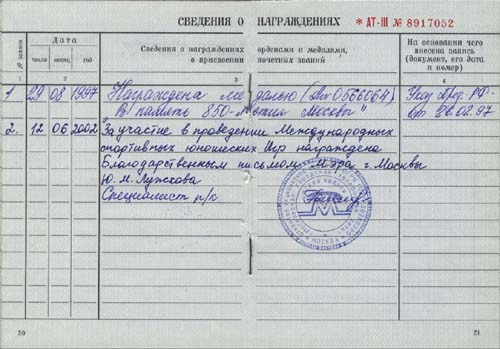 СВЕДЕНИЯ О НАГРАЖДЕНИЯХ * АТ-III № 8917052
№ записи
Дата
число месяц год
Сведения о награждениях орденами и медалями,
о присвоении почетных званий
На основании чего
внесена запись
(документ, его дата
и номер)
1 2 3 4
1 29 08 1997 Награждена медалью (А 0566064) Указ През. РФ-
В память 850-летия Москвы" от 26.02.97
2. 12 06 2002 "За участие в проведении Международных
спортивных юношеских Игр награждена
Благодарственным письмом Мэра г. Москвы
Ю. М. Лужкова
Специалист п/к
МОСКВА
20 21